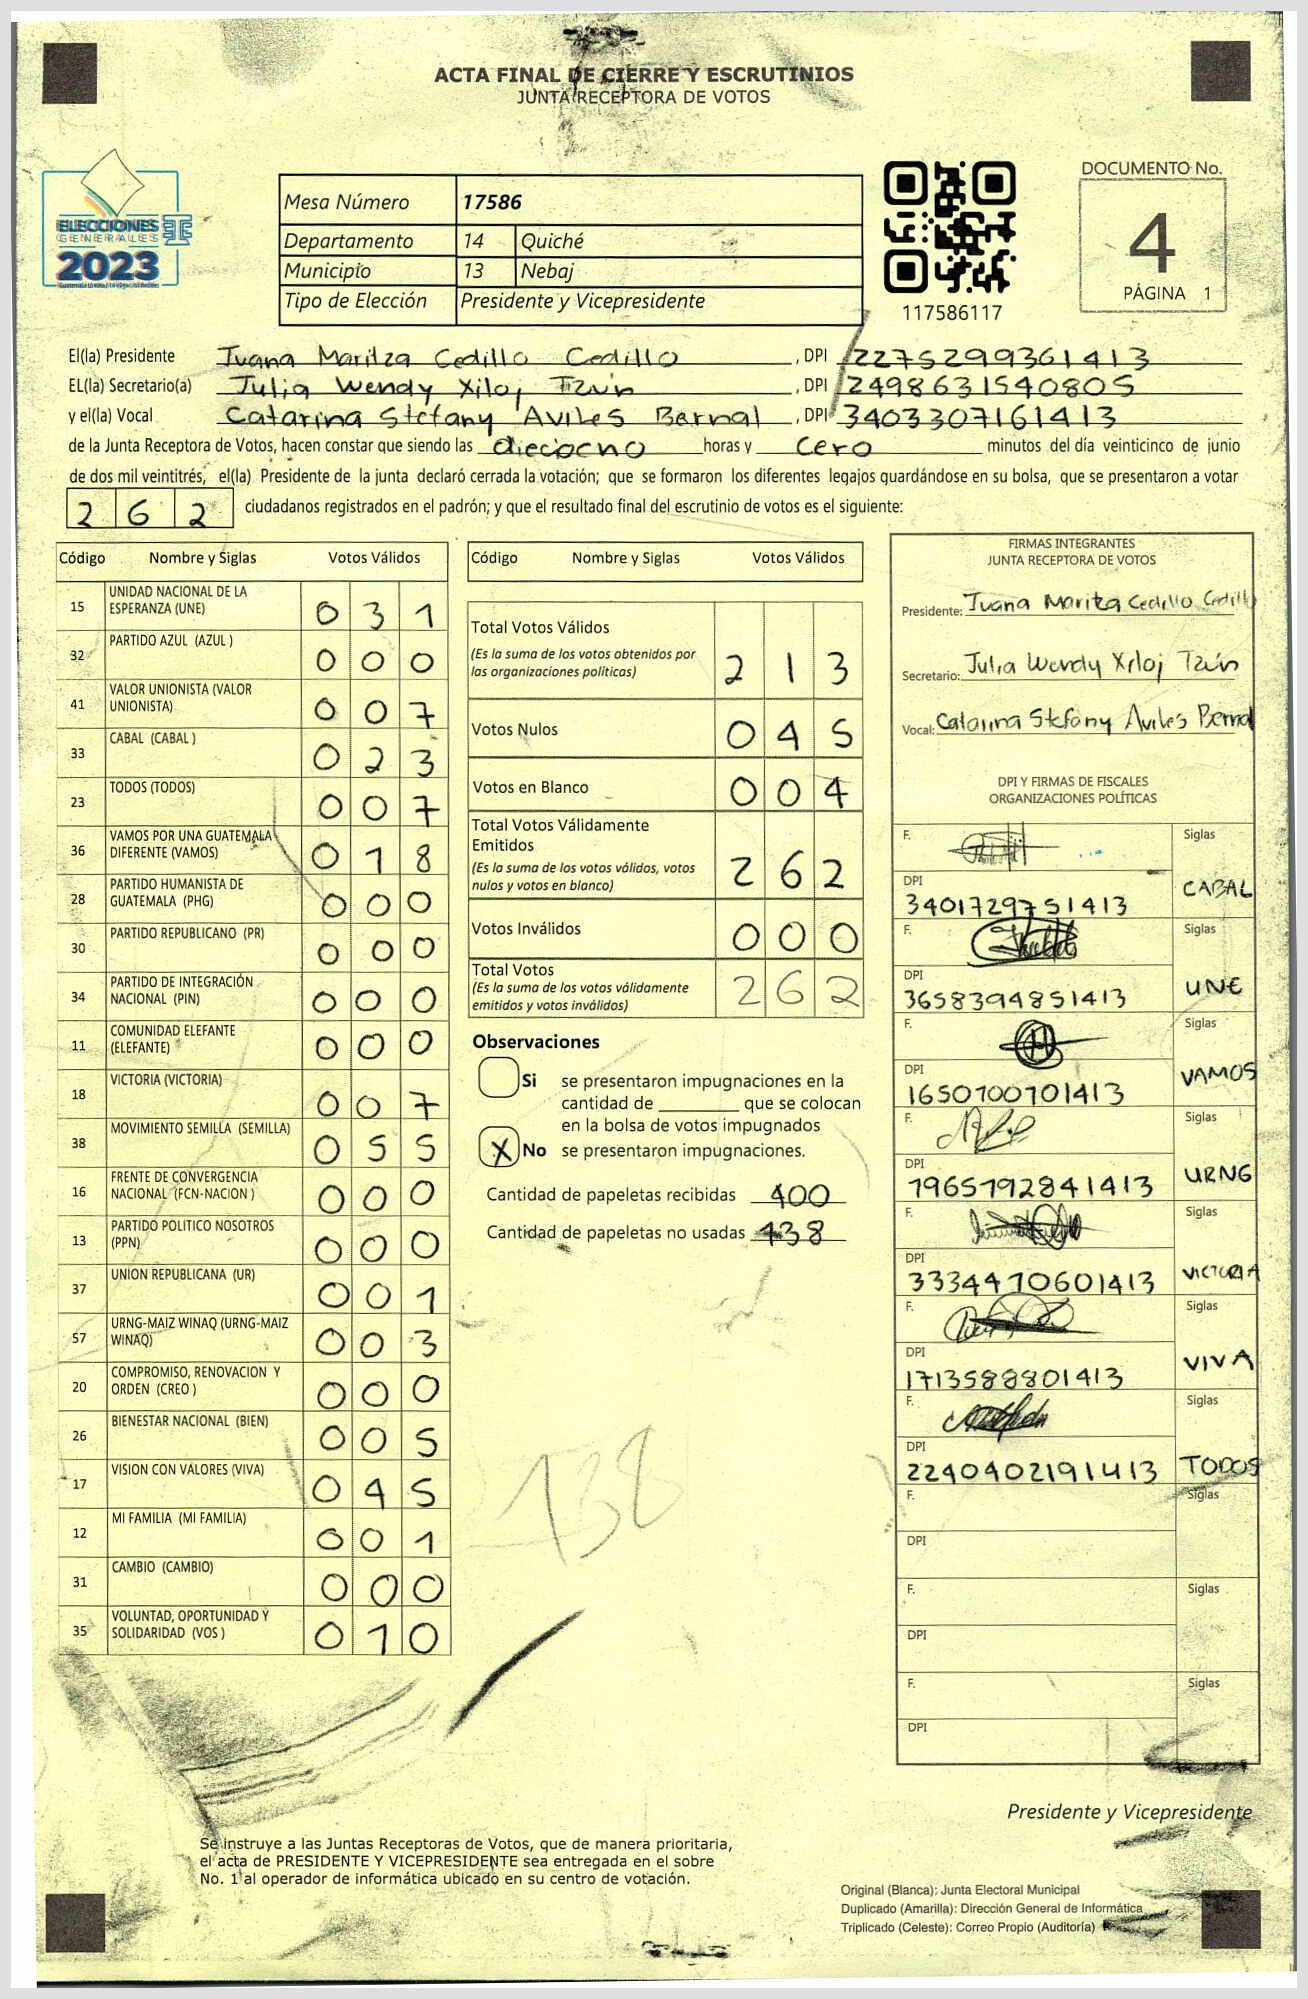 ACTA FINAL DE CIERRE Y ESCRUTINIOS
JUNTA RECEPTORA DE VOTOS
ELECCIONES
GENERALES
2023
Mesa Número 17586
Departamento 14 Quiché
Municipio 13 Nebaj
Tipo de Elección Presidente y Vicepresidente
117586117
DOCUMENTO No.
4
PÁGINA 1
El(la) Presidente Juana Maritza Cedillo Cedillo , DPI 2275299361413
EL(la) Secretario(a) Julia Wendy Xiloj Tzún , DPI 2498631540805
y el(la) Vocal Catarina Stefany Aviles Bernal , DPI 3403307161413
de la Junta Receptora de Votos, hacen constar que siendo las dieciocho horas y cero minutos del día veinticinco de junio
de dos mil veintitrés, el(la) Presidente de la junta declaró cerrada la votación; que se formaron los diferentes legajos guardándose en su bolsa, que se presentaron a votar
262 ciudadanos registrados en el padrón; y que el resultado final del escrutinio de votos es el siguiente:
Código Nombre y Siglas Votos Válidos
15 UNIDAD NACIONAL DE LA ESPERANZA (UNE) 031
32 PARTIDO AZUL (AZUL ) 000
41 VALOR UNIONISTA (VALOR UNIONISTA) 007
33 CABAL (CABAL ) 023
23 TODOS (TODOS) 007
36 VAMOS POR UNA GUATEMALA DIFERENTE (VAMOS) 018
28 PARTIDO HUMANISTA DE GUATEMALA (PHG) 000
30 PARTIDO REPUBLICANO (PR) 000
34 PARTIDO DE INTEGRACIÓN NACIONAL (PIN) 000
11 COMUNIDAD ELEFANTE (ELEFANTE) 000
18 VICTORIA (VICTORIA) 007
38 MOVIMIENTO SEMILLA (SEMILLA) 055
16 FRENTE DE CONVERGENCIA NACIONAL (FCN-NACION ) 000
13 PARTIDO POLITICO NOSOTROS (PPN) 000
37 UNION REPUBLICANA (UR) 001
57 URNG-MAIZ WINAQ (URNG-MAIZ WINAQ) 003
20 COMPROMISO, RENOVACION Y ORDEN (CREO ) 000
26 BIENESTAR NACIONAL (BIEN) 005
17 VISION CON VALORES (VIVA) 045
12 MI FAMILIA (MI FAMILIA) 001
31 CAMBIO (CAMBIO) 000
35 VOLUNTAD, OPORTUNIDAD Y SOLIDARIDAD (VOS ) 010
Código Nombre y Siglas Votos Válidos
Total Votos Válidos
(Es la suma de los votos obtenidos por
las organizaciones políticas) 213
Votos Nulos 045
Votos en Blanco 004
Total Votos Válidamente
Emitidos
(Es la suma de los votos válidos, votos
nulos y votos en blanco) 262
Votos Inválidos 000
Total Votos
(Es la suma de los votos válidamente
emitidos y votos inválidos) 262
Observaciones
Si se presentaron impugnaciones en la
cantidad de ________ que se colocan
en la bolsa de votos impugnados
X No se presentaron impugnaciones.
Cantidad de papeletas recibidas 400
Cantidad de papeletas no usadas 438
138
FIRMAS INTEGRANTES
JUNTA RECEPTORA DE VOTOS
Presidente: Juana Maritza Cedillo Cedillo
Secretario: Julia Wendy Xiloj Tzún
Vocal: Catarina Stefany Aviles Bernal
DPI Y FIRMAS DE FISCALES
ORGANIZACIONES POLÍTICAS
F. Siglas
DPI 3401729751413 CABAL
F. Siglas
DPI 3658394851413 UNE
F. Siglas
DPI 1650700701413 VAMOS
F. Siglas
DPI 1965792841413 URNG
F. Siglas
DPI 3334470601413 VICTORIA
F. Siglas
DPI 1713588801413 VIVA
F. Siglas
DPI 2240402191413 TODOS
F. Siglas
DPI
F. Siglas
DPI
F. Siglas
DPI
Presidente y Vicepresidente
Se instruye a las Juntas Receptoras de Votos, que de manera prioritaria,
el acta de PRESIDENTE Y VICEPRESIDENTE sea entregada en el sobre
No. 1 al operador de informática ubicado en su centro de votación.
Original (Blanca): Junta Electoral Municipal
Duplicado (Amarilla): Dirección General de Informática
Triplicado (Celeste): Correo Propio (Auditoría)